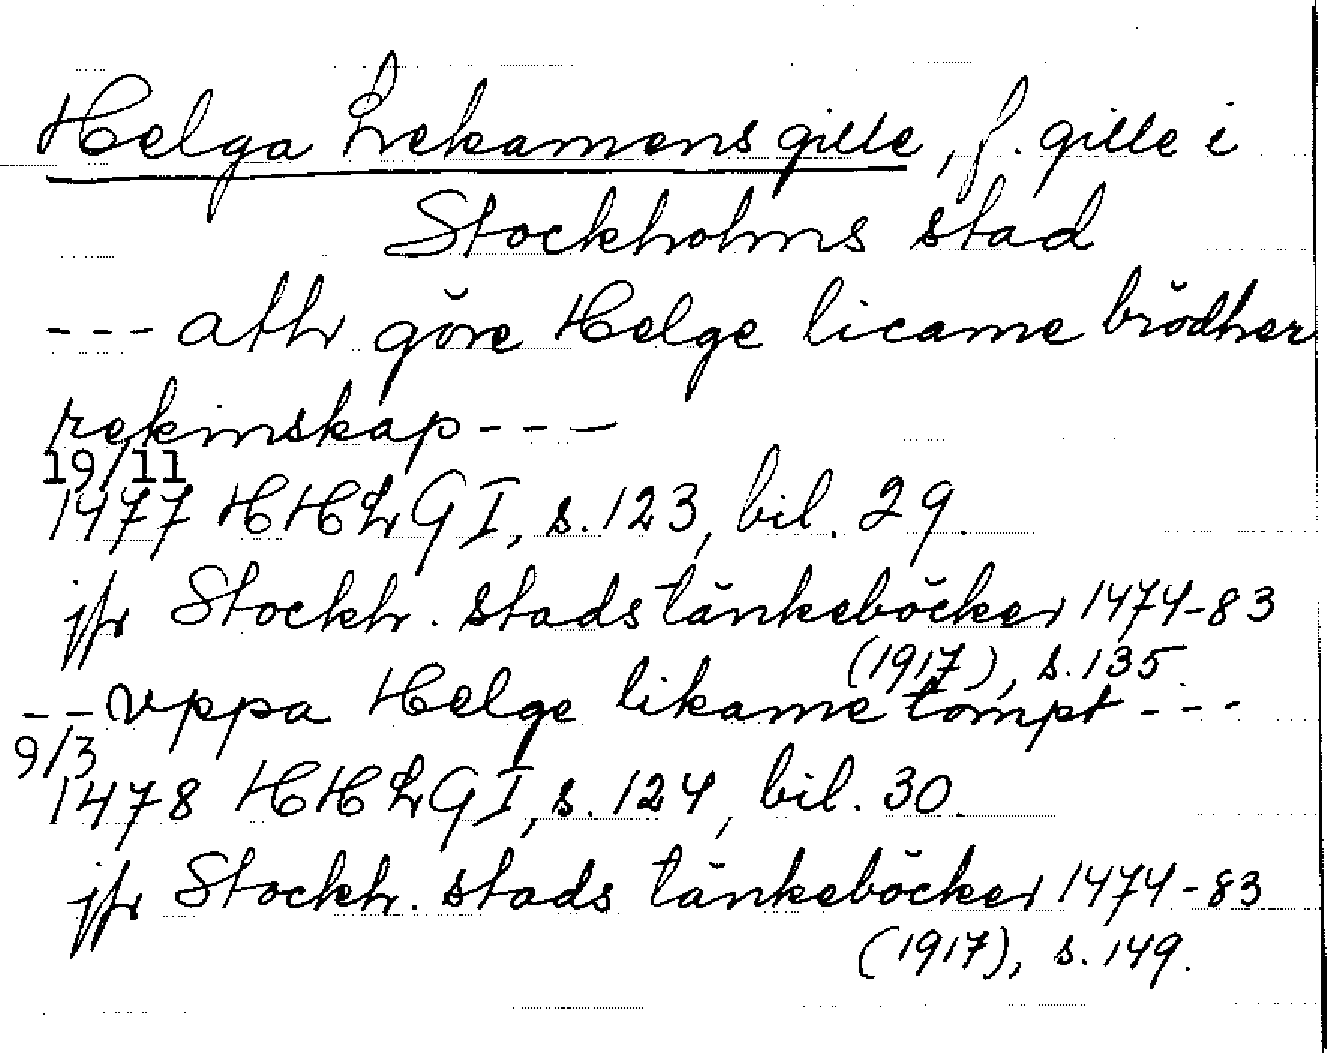 Helga Lekamens gille, f. gille i
Stockholms stad
--- ath göre Helge licame brödher
rekinskap---
19/11
1477 HHLG I, s. 123, bil. 29.
jfr Stockh. stads tänkeböcker 1474-83
(1917), s. 135.
-- vppa Helge likame tompt ---
9/3
1478 HHLG I, s. 124, bil. 30.
jfr Stockh. stads tänkeböcker 1474-83
(1917), s. 149.